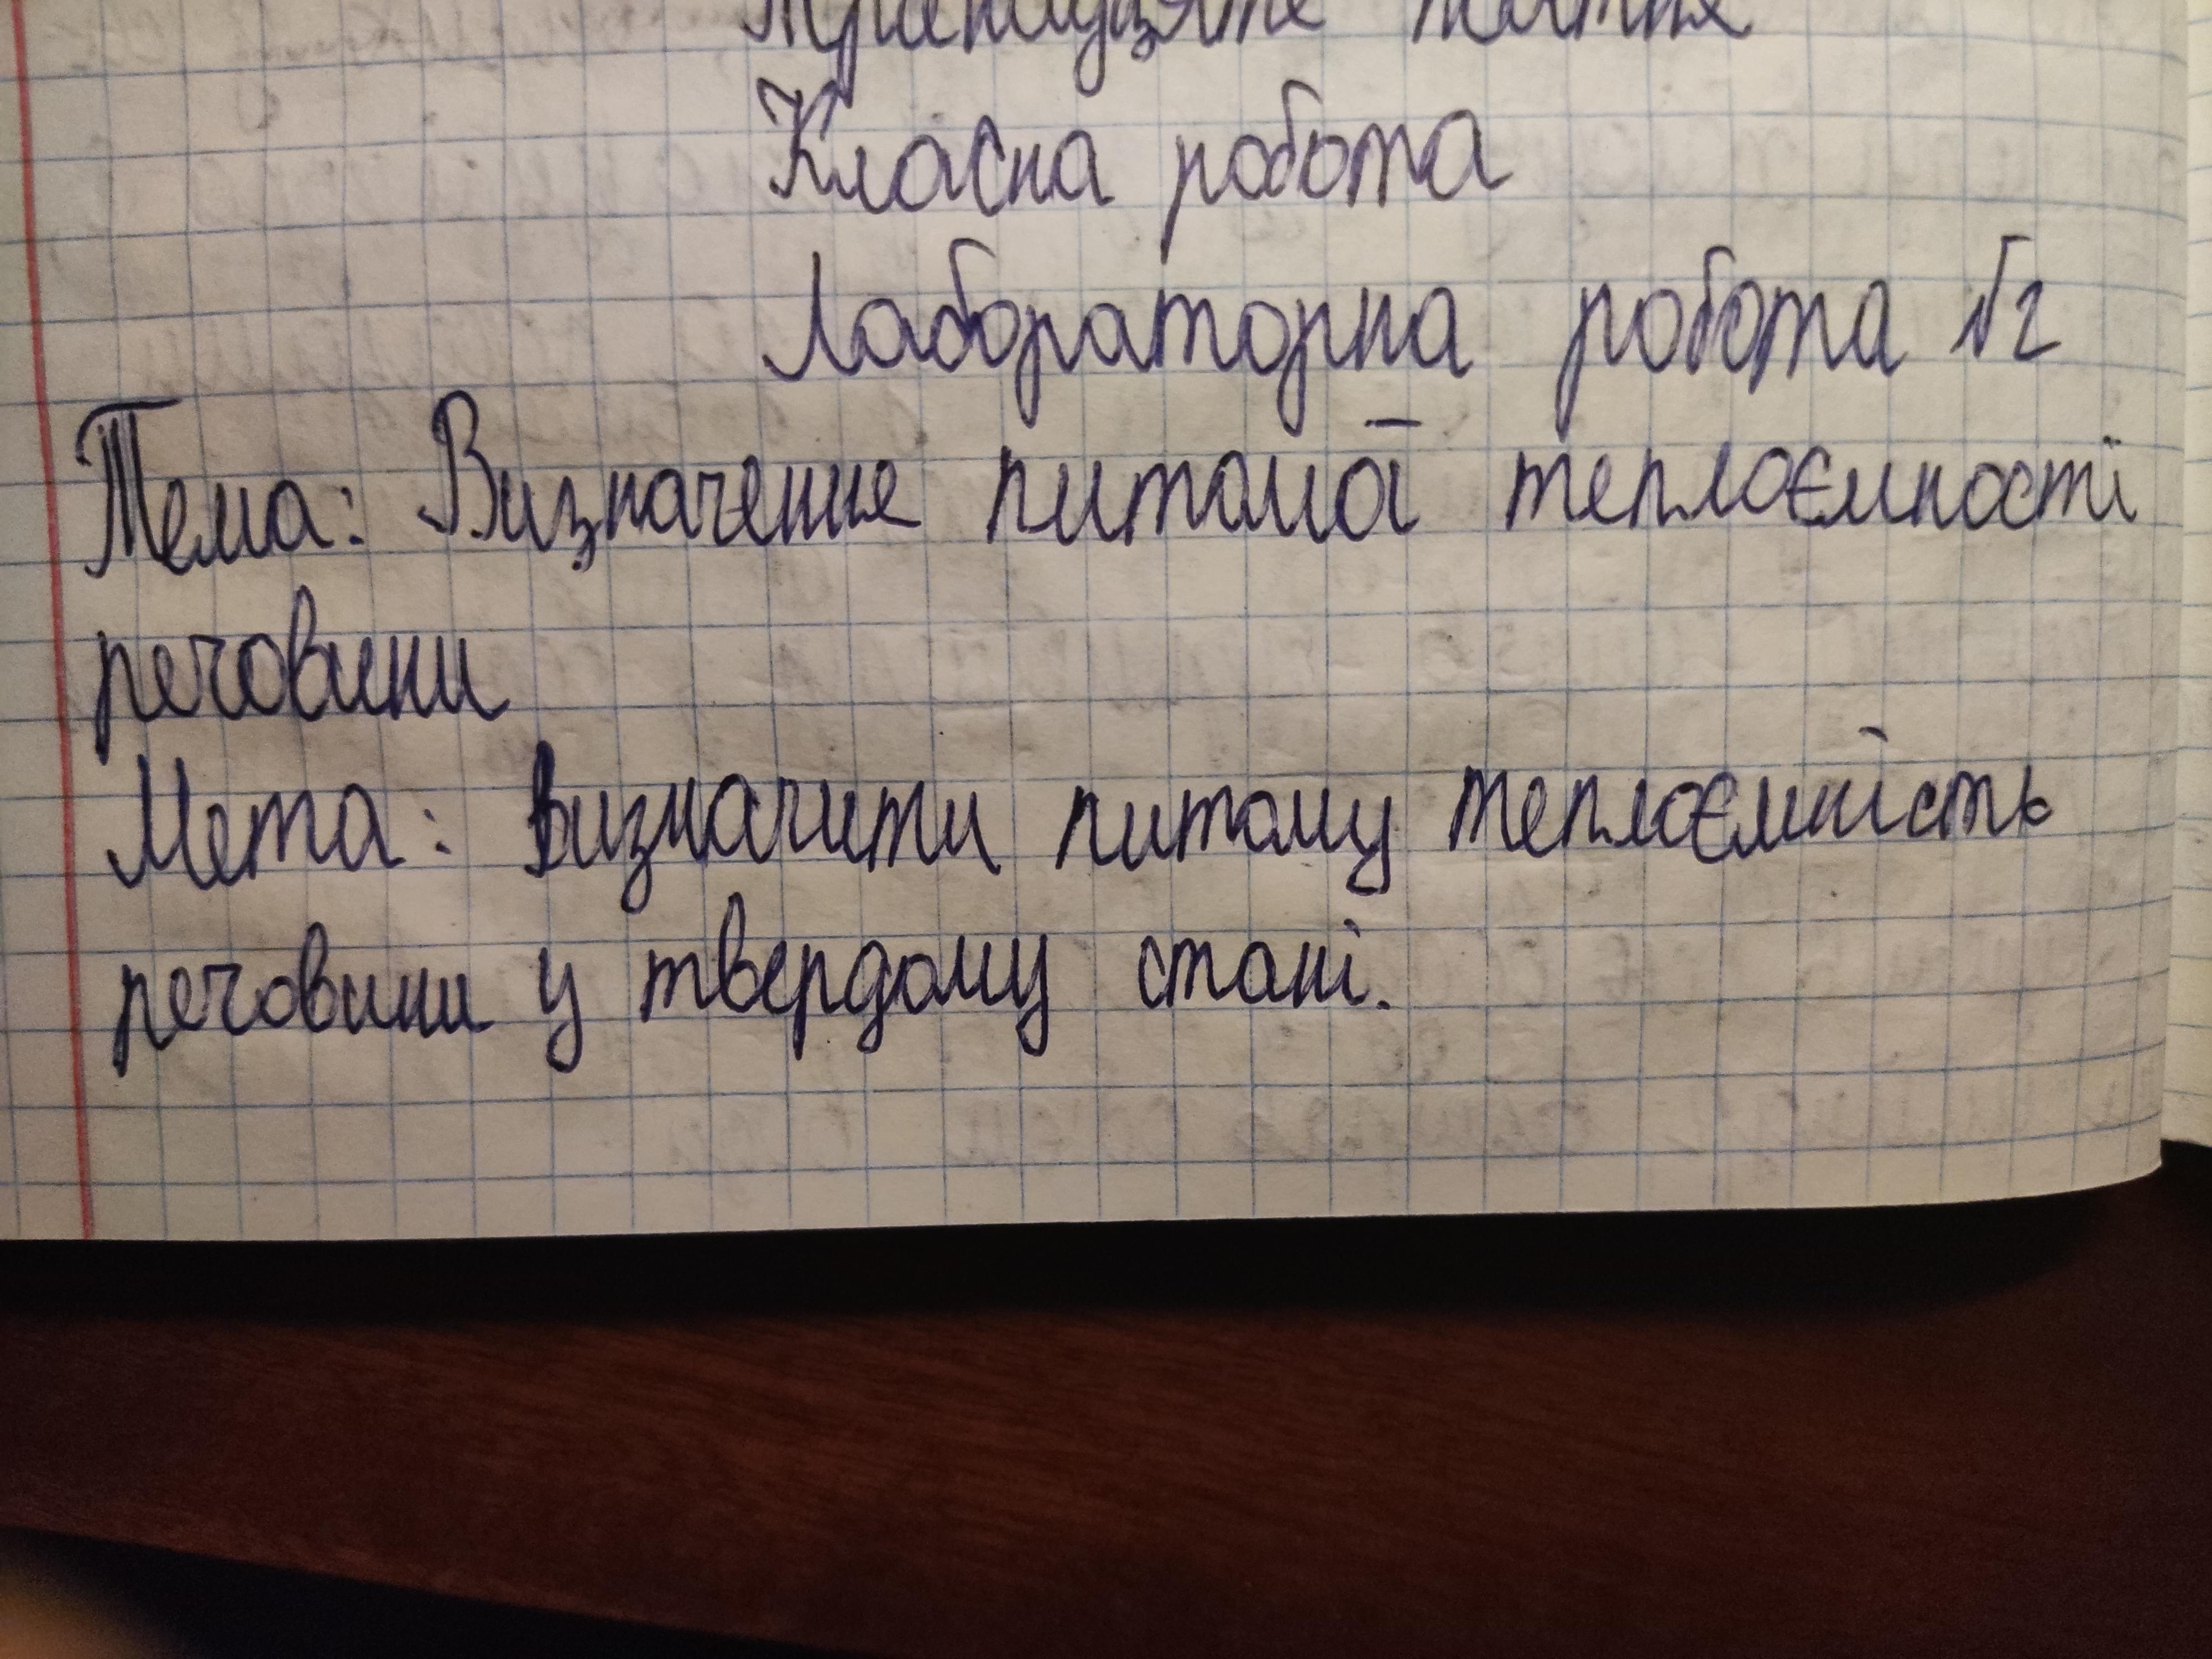 Тринадцяте жовтня
Класна робота
Лабораторна робота №2
Тема: Визначення питомої теплоємності
речовини
Мета: визначити питому теплоємність
речовини у твердому стані.